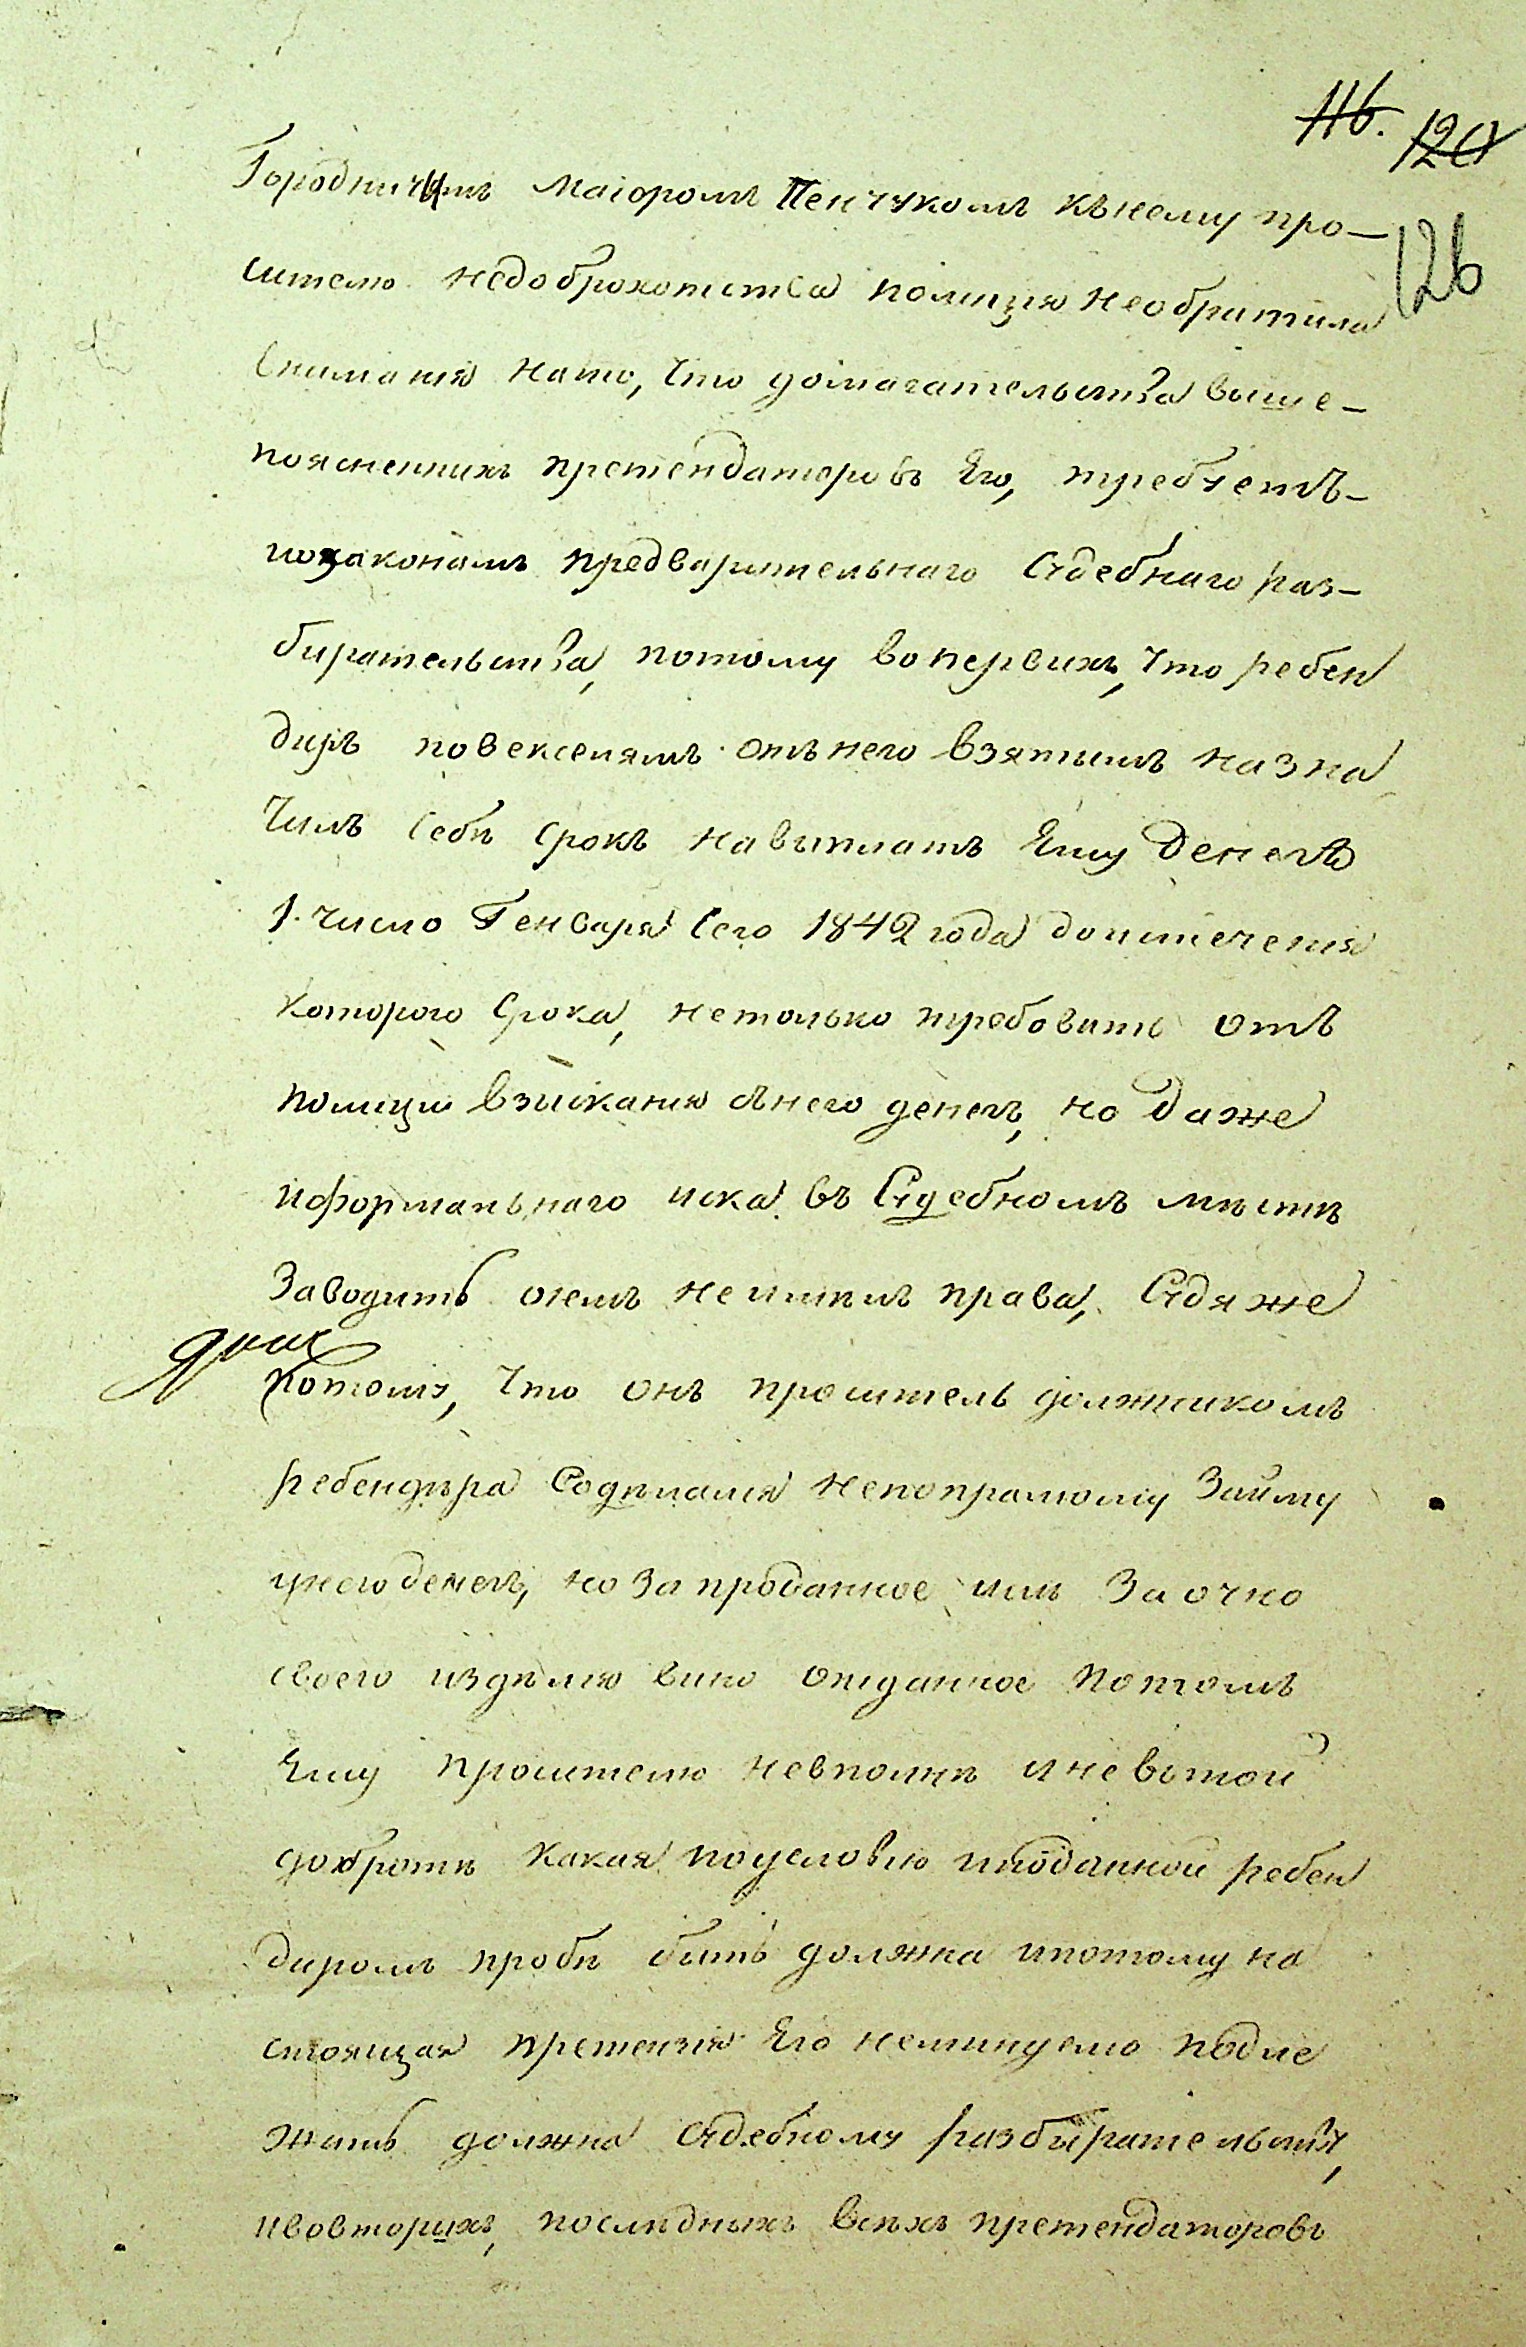 116. 120
126
Городничимъ Маіоромъ Пенчукомъ кънему про-
сителю недоброхотства полиція необратила
вниманія нато, что домагательства выше-
поясненныхъ претендаторовъ Его, требуетъ-
позаконамъ предварительнаго Судебнаго раз-
бирательства, потому вопервихъ, что ребен
диръ повекселямъ отънего взятымъ назна
чилъ себѣ срокъ навыплатъ Ему Денегъ
1. число Генваря сего 1842 года доистеченія
которого срока, нетолько требовать отъ
полиціи взысканія снего денегъ, но даже
иформальнаго иска въ Судебномъ мѣстѣ
Заводить онемъ неимѣлъ права, Судя же
потому, что онъ проситель должникомъ
ребендира Содѣлался непопрямому Займу
унего денегъ, но За проданное имъ За очно
своего издѣлія вино отданное потомъ
Ему просителю невполнѣ иневътой
добротѣ какая поусловію иподанной ребен
диромъ пробѣ быть должна ипотому на
стоящая претензія Его неминуемо подле
жать должна Судебному разбирательству,
ивовторихъ, послѣднихъ всѣхъ претендаторовъ